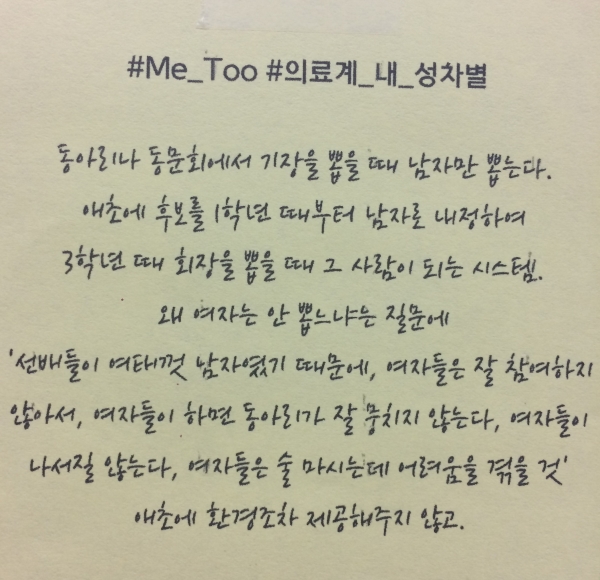 #Me_Too #의료계_내_성차별
동아리나 동문회에서 기장을 뽑을 때 남자만 뽑는다.
애초에 후보를 1학년 때부터 남자로 내정하여
3학년 때 회장을 뽑을 때 그 사람이 되는 시스템.
왜 여자는 안 뽑느냐는 질문에
'선배들이 여태껏 남자였기 때문에, 여자들은 잘 참여하지
않아서, 여자들이 하면 동아리가 잘 뭉치지 않는다, 여자들이
나서질 않는다, 여자들은 술 마시는데 어려움을 겪을 것'
애초에 환경조차 제공해주지 않고.